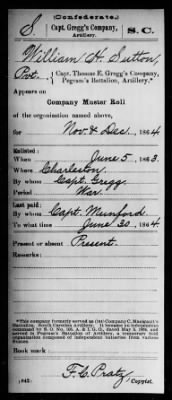 (Confederate.)
S Capt. Gregg's Company, S.C.
Artillery.
William H. Sutton,
Pvt., Capt. Thomas E. Gregg's Company,
Pegram's Battalion, Artillery.*
Appears on
Company Muster Roll
of the organization named above,
for Nov. & Dec., 1864.
Enlisted:
When June 5, 1863.
Where Charleston.
By whom Capt. Gregg
Period War.
Last paid:
By whom Capt. Munford.
To what time June 30, 1864.
Present or absent Present.
Remarks:
*This company formerly served as
Battalion, South Carolina Artillery. It became an independent
command by S. O., No.
served in Pegram's Battalion of Artillery, a temporary field
organization composed of independent batteries from various
States.
Book mark:
(642) F. C. Pratz, Copyist.